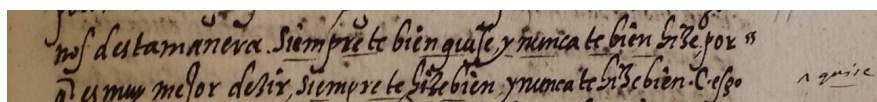 nos destamañera. Siempre te bien quise, y nunca te bien hize, por
q̃ es muy mejor dezir, siempre te hize bien, y nunca te hize bien.
^ quise